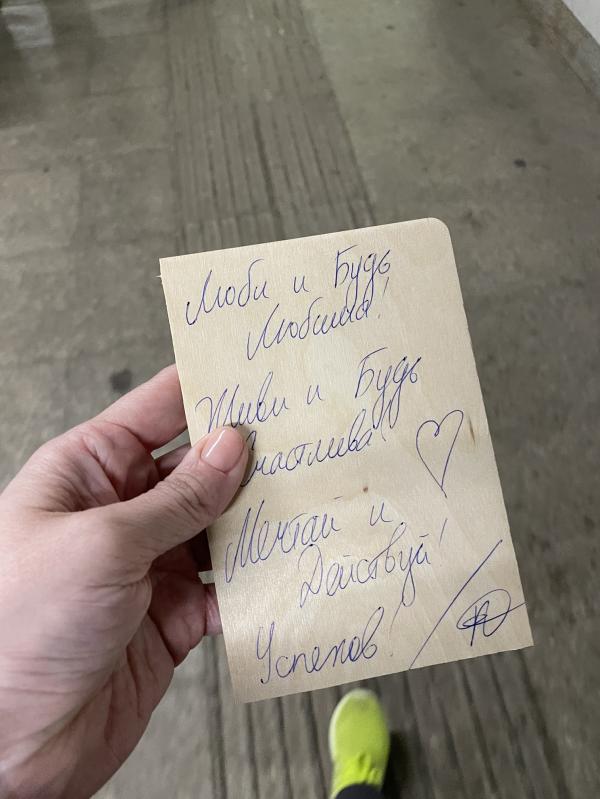 Люби и Будь
Любима!
Живи и Будь
Счастлива!
Мечтай и
Действуй!
Успехов!